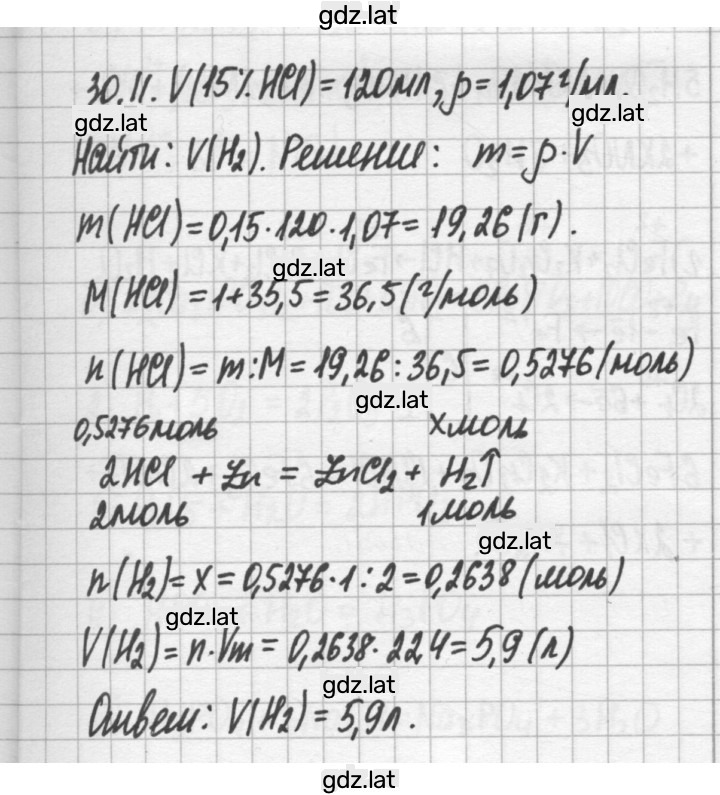 gdz.lat
30.11. V(15% HCl) = 120мл, ρ = 1,07 г/мл.
gdz.lat
gdz.lat
Найти: V(H₂). Решение: m = ρ·V
m(HCl) = 0,15·120·1,07 = 19,26 (г).
gdz.lat
M(HCl) = 1+35,5 = 36,5 (г/моль)
n(HCl) = m:M = 19,26:36,5 = 0,5276 (моль)
gdz.lat
0,5276 моль х моль
2HCl + Zn = ZnCl₂ + H₂↑
2 моль 1 моль
gdz.lat
n(H₂) = x = 0,5276·1:2 = 0,2638 (моль)
gdz.lat
V(H₂) = n·Vm = 0,2638·22,4 = 5,9 (л)
gdz.lat
Ответ: V(H₂) = 5,9 л.
gdz.lat